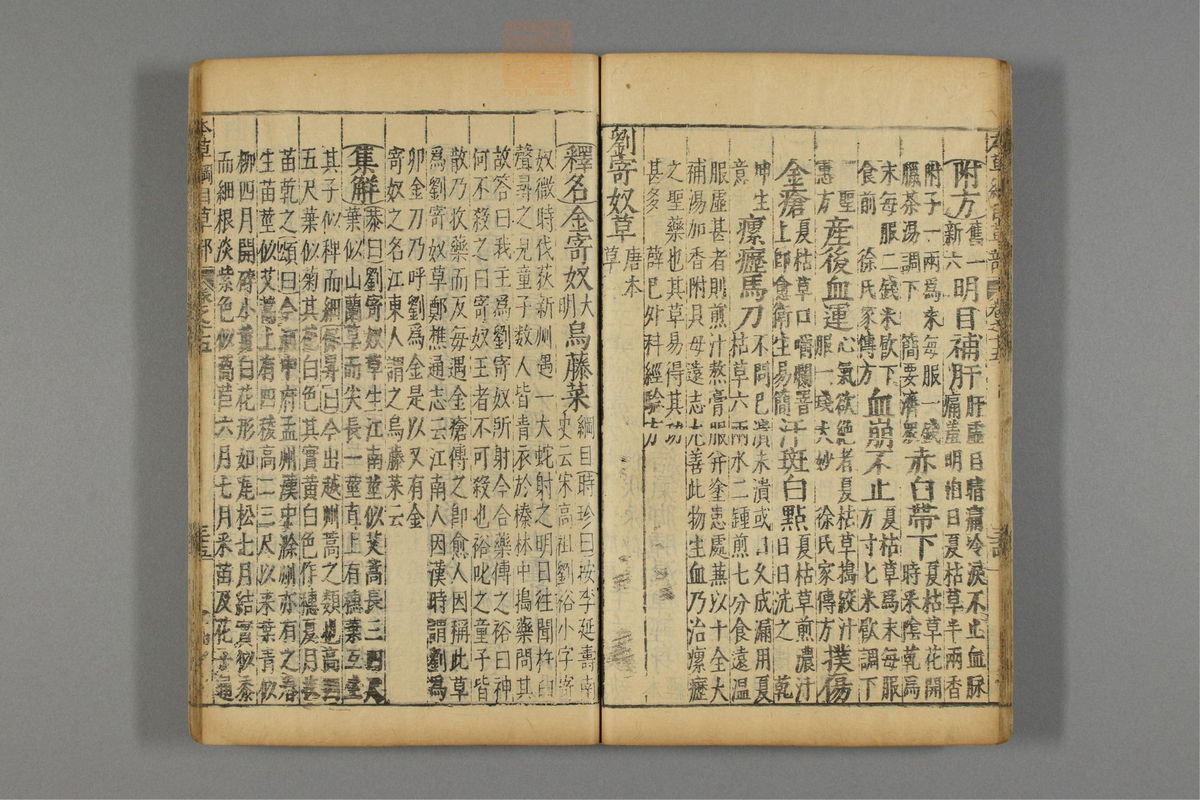 附方舊一新六明目補肝肝虛目睛痛冷淚不止血脉
痛羞明怕日夏枯草半兩香
附子一兩爲末每服一錢
臘茶湯調下 簡要濟眾赤白帶下夏枯草花開
時采陰乾爲
末每服二錢米飲下
食前 徐氏家傳方血崩不止夏枯草爲末每服
方寸匕米飲調下
聖
惠方産後血運心氣欲絕者夏枯草搗絞汁
服一盞大妙 徐氏家傳方撲傷
金瘡夏枯草口嚼爛罯
上即愈衛生易簡汗斑白點夏枯草煎濃汁
日日洗之 乾
坤生
意瘰癧馬刀不問已潰未潰或日久成漏用夏
枯草六兩水二鍾煎七分食遠溫
服虛甚者則煎汁熬膏服并塗患處兼以十全大
補湯加香附貝母遠志尤善此物生血乃治瘰癧
之聖藥也其草易得其功
甚多 薛已外科經驗方
劉寄奴草唐本
草
釋名金寄奴大
明烏藤菜綱目時珍曰按李延壽南
史云宋高祖劉裕小字寄
奴微時伐荻新洲遇一大蛇射之明日往聞杵臼
聲尋之見童子數人皆青衣於榛林中搗藥問其
故答曰我主爲劉寄奴所射今合藥傅之裕曰神
何不殺之曰寄奴王者不可殺也裕叱之童子皆
散乃收藥而反每遇金瘡傅之卽愈人因稱此草
爲劉寄奴草鄭樵通志云江南人因漢時謂劉爲
卯金刀乃呼劉爲金是以又有金
寄奴之名江東人謂之烏藤菜云
集解恭曰劉寄奴草生江南莖似艾蒿長三四尺
葉似山蘭草而尖長一莖直上有穗葉互生
其子似稗而細保昇曰今出越州蒿之類也高四
五尺葉似菊其花白色其實黃白色作穗夏月
苗乾之頌曰今河中府孟州漢中滁州亦有之春
生苗莖似艾蒿上有四稜高二三尺以來葉青似
柳四月開碎小黃白花形如瓦松七月結實似黍
而細根淡紫色似萵苣六月七月采苗及花子通
本草綱目草部